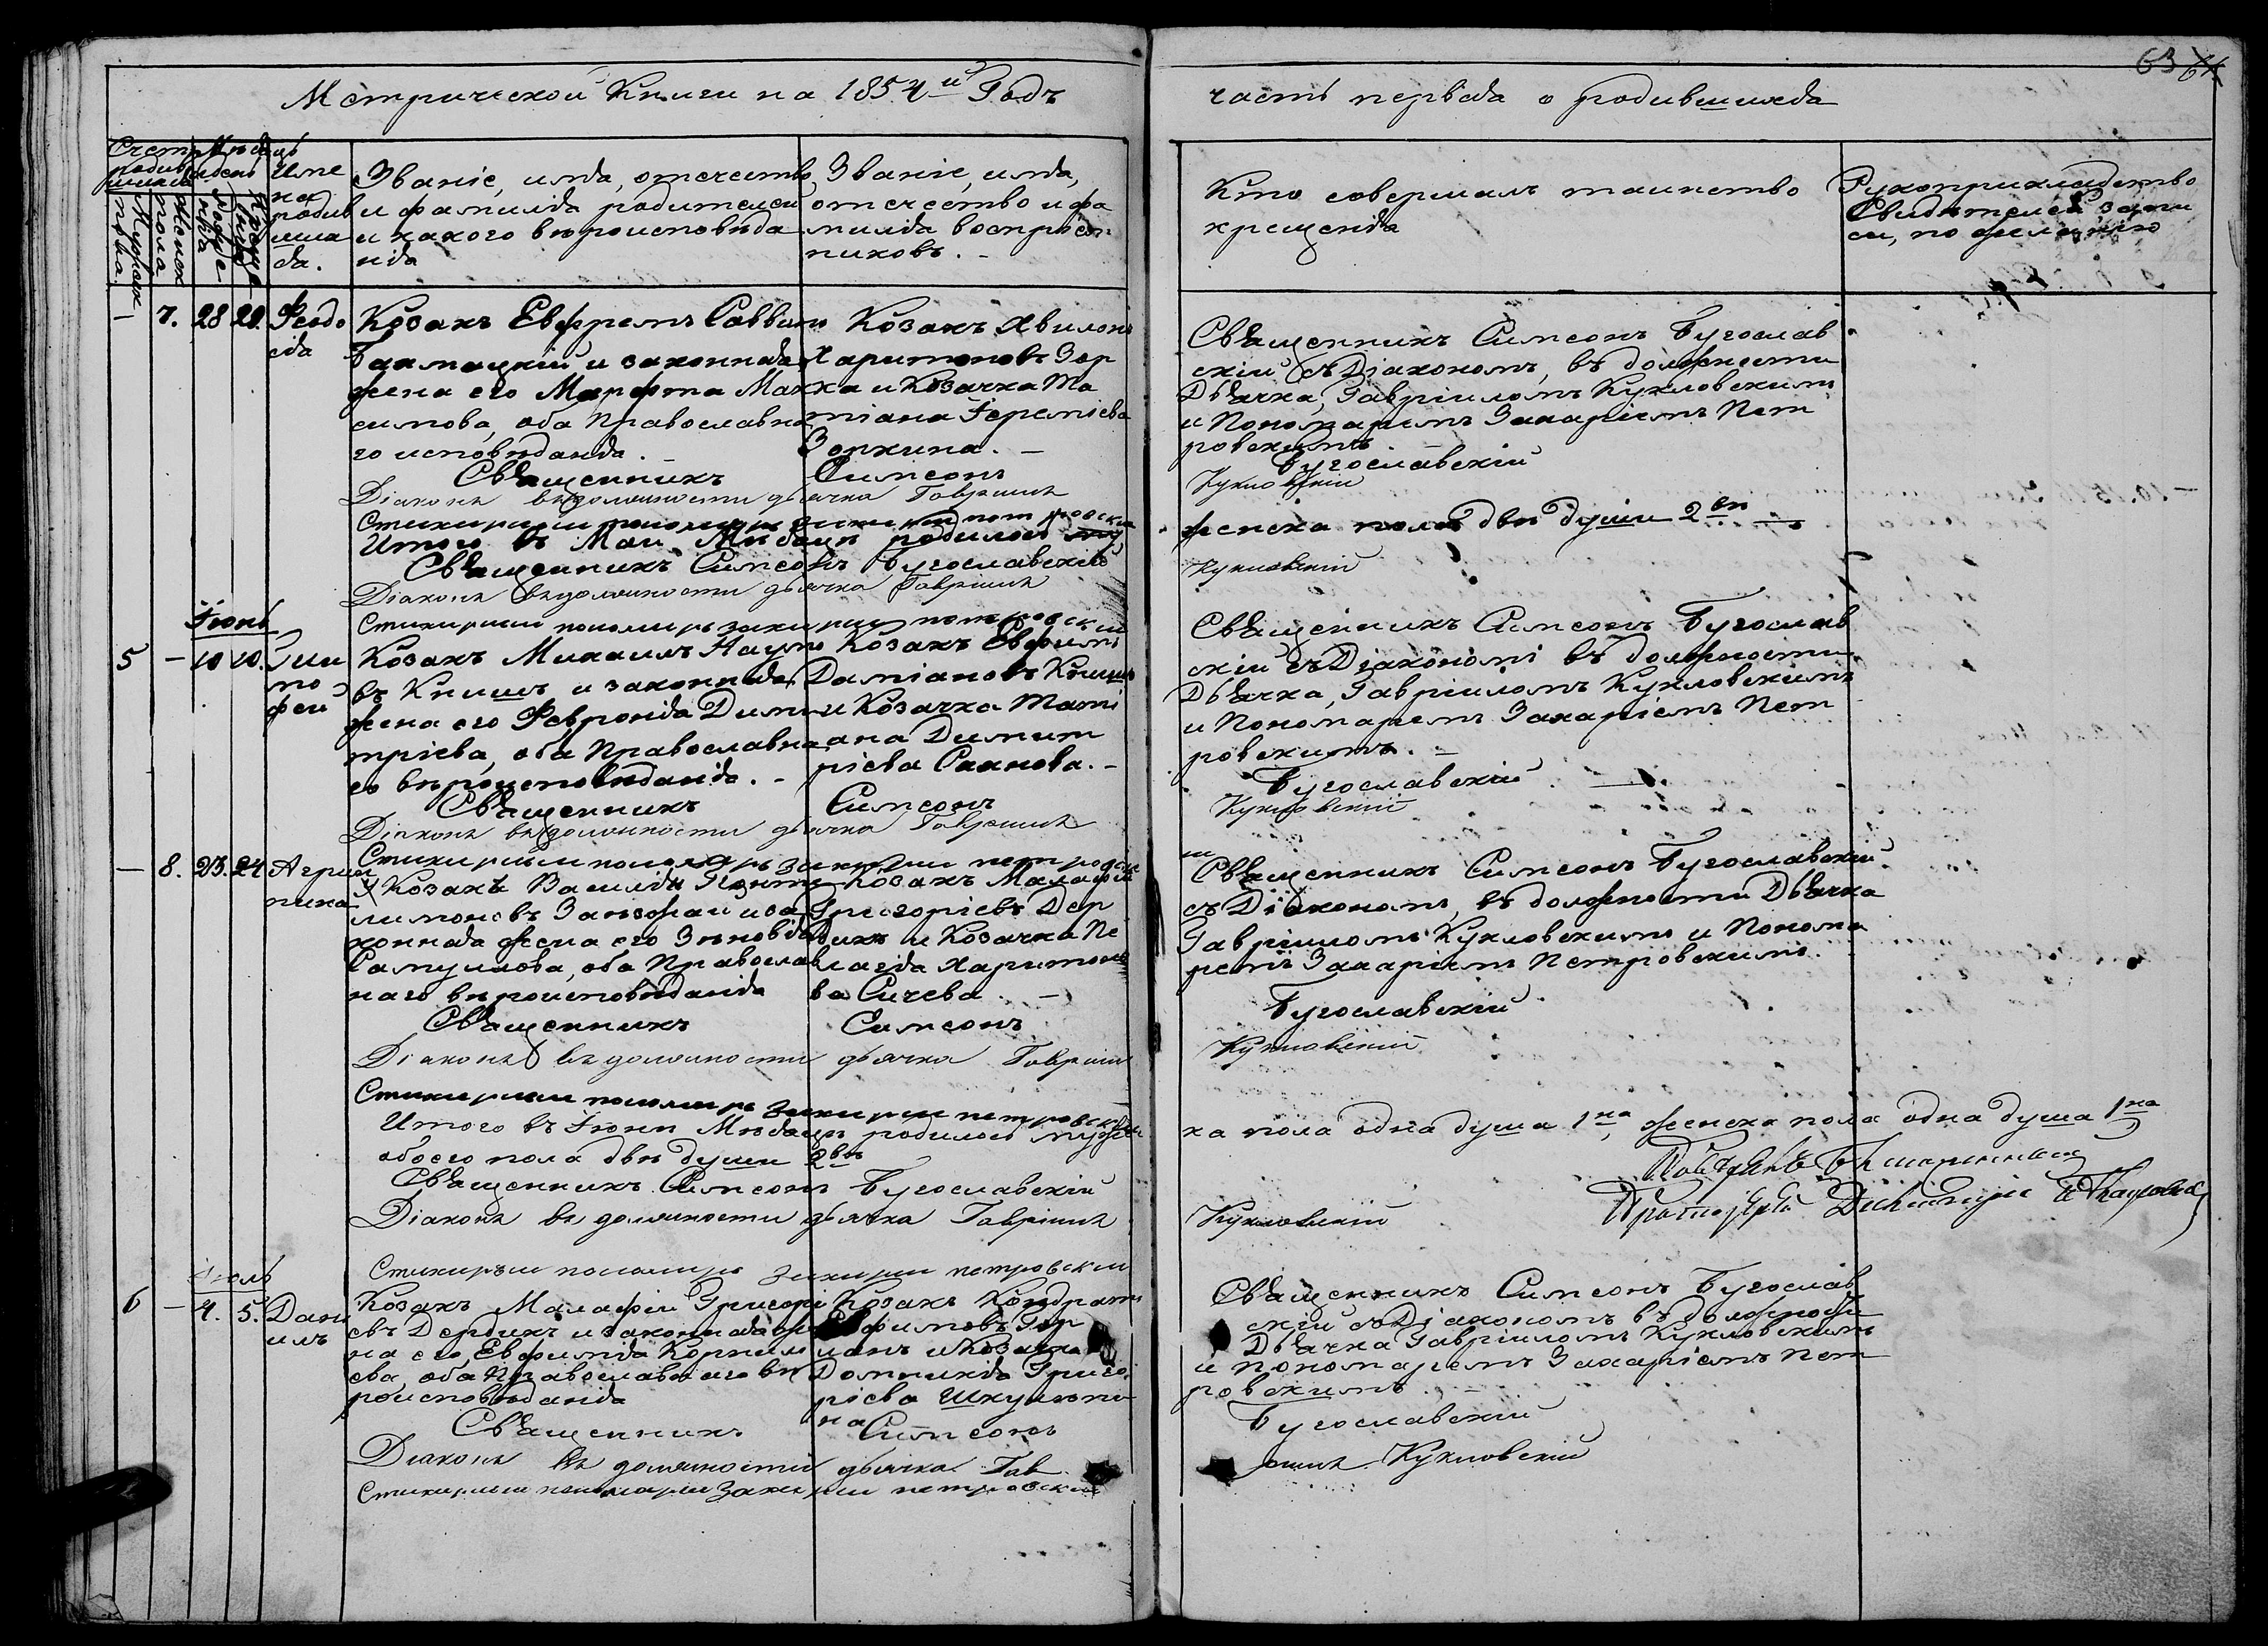 63 64
Метрической Книги на 1854й Годъ
часть первая о родившихся
Счетъ родив
шихся
Мужеск
пола.
Женск
пола
Мѣсяцъ
и день
рожде
нія
креще
нія
Име
на
родив
шиха
ся.
Званіе, имя, отчество,
и фамилія родителей
и какого вѣроисповѣда
нія
Званіе, имя,
отчество и фа
милія воспріем
никовъ. -
Кто совершалъ таинство
крещенія
Рукоприкладство
Свидѣтелей запи
си, по желанію
— 7. 28 29. Феодо
сія
Козакъ Ефремъ Саввинъ
Бахмацкій и законная
жена его Марфа Мак
симова, оба Православна
го исповѣданія. -
Козакъ Авилонъ
Харитоновъ Зор
ка и Козачка Та
тіана Іереміева
Зоркина. -
Священникъ Симеонъ Бугослав
скій съ Діакономъ, въ должности
Дьячка, Гавріиломъ Кукловскимъ
и Пономаремъ Захаріемъ Пет
ровскимъ
Священникъ Симеонъ Бугославскій
Діаконъ въ должности дьячка Гавріилъ Кукловскій
Стихарный пономарь Захарій Петровскій
Итого въ Маи Мѣсяцѣ родилось
женска пола двѣ души 2вѣ
Священникъ Симеонъ Бугославскій
Діаконъ въ должности дьячка Гавріилъ Кукловскій
Стихарный пономарь Захарій Петровскій
Іюнь
5 — 10 10. Тимо
фей
Козакъ Михаилъ Наумо
въ Книшъ и законная
жена его Февронія Дими
тріева, оба Православна
го вѣроисповѣданія. -
Козакъ Евфимъ
Даміановъ Книшъ
и Козачка Таті
ана Димит
ріева Сахнова. -
Священникъ Симеонъ Бугослав
скій съ Діакономъ въ должности
Дьячка, Гавріиломъ Кукловскимъ
и Пономаремъ Захаріемъ Пет
ровскимъ. -
Священникъ Симеонъ Бугославскій
Діаконъ въ должности дьячка Гавріилъ Кукловскій
Стихарный пономарь Захарій Петровскій
— 8. 23. 24 Агрип
пина
Козакъ Василій
лимоновъ и за
конная жена его Зиновія
Самуилова, оба Православ
наго вѣроисповѣданія
Козакъ Малафій
Григоріевъ Дер
дикъ и Козачка Пе
лагія Харитоно
ва Сичева. -
Священникъ Симеонъ Бугославскій
съ Діакономъ, въ должности Дьячка
Гавріиломъ Кукловскимъ и Понома
ремъ Захаріемъ Петровскимъ.
Священникъ Симеонъ Бугославскій
Діаконъ въ должности дьячка Гавріилъ Кукловскій
Стихарный пономарь Захарій Петровскій
Итого въ Іюнѣ Мѣсяцѣ родилось мужес
ка пола одна душа 1на, женска пола одна душа 1на
обоего пола двѣ души 2вѣ
Священникъ Симеонъ Бугославскій
Діаконъ въ должности дьячка Гавріилъ Кукловскій
Стихарный пономарь Захарій Петровскій
Іюль
6 — 4. 5. Дани
илъ
Козакъ Малафій Григорі
евъ Дердикъ и законная же
на его, Евфимія Корнилі
ева, оба Православнаго вѣ
роисповѣданія
Козакъ Кондратъ
Евфимовъ Гор
и Козачка
Домникія Григо
ріева Шкулепи
на
Священникъ Симеонъ Бугослав
скій съ Діакономъ въ должности
Дьячка Гавріиломъ Кукловскимъ
и пономаремъ Захаріемъ Пет
ровскимъ. -
Священникъ Симеонъ Бугославскій
Діаконъ въ должности дьячка Гав
ріилъ Кукловскій
Стихарный пономарь Захарій Петровскій